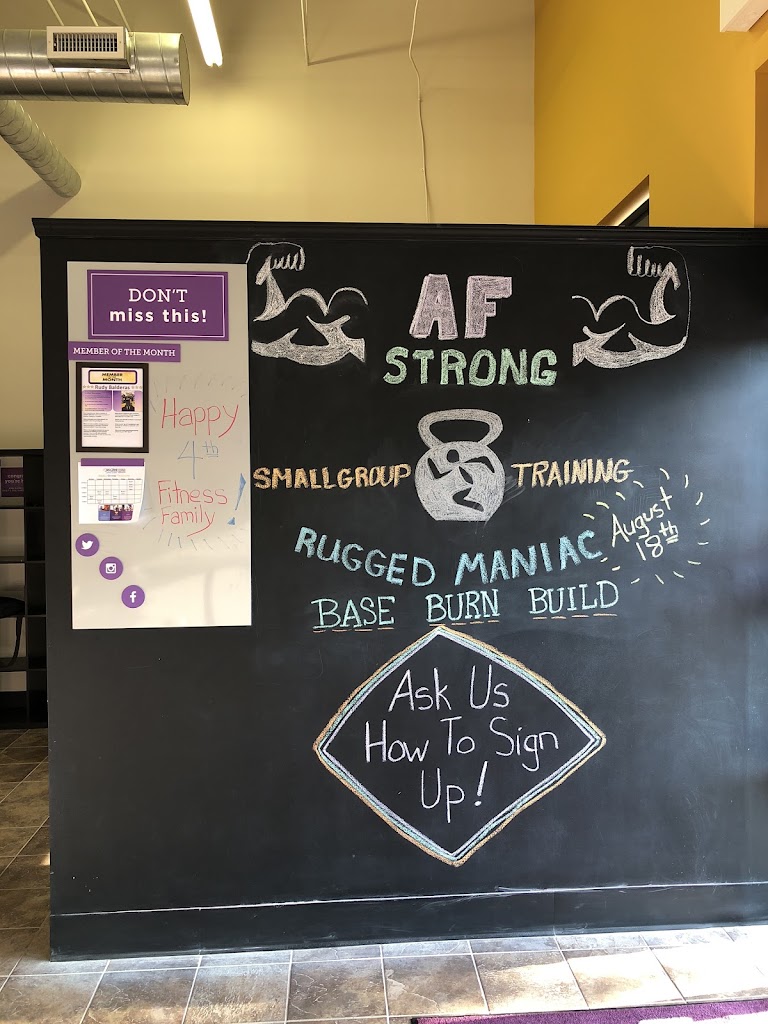 DON'T
miss this!
MEMBER OF THE MONTH
MEMBER
OF THE
MONTH
Rudy Balderas
Happy
4th
Fitness
Family!
AF
STRONG
SMALL GROUP TRAINING
RUGGED MANIAC
August
18th
BASE BURN BUILD
Ask Us
How To Sign
Up!